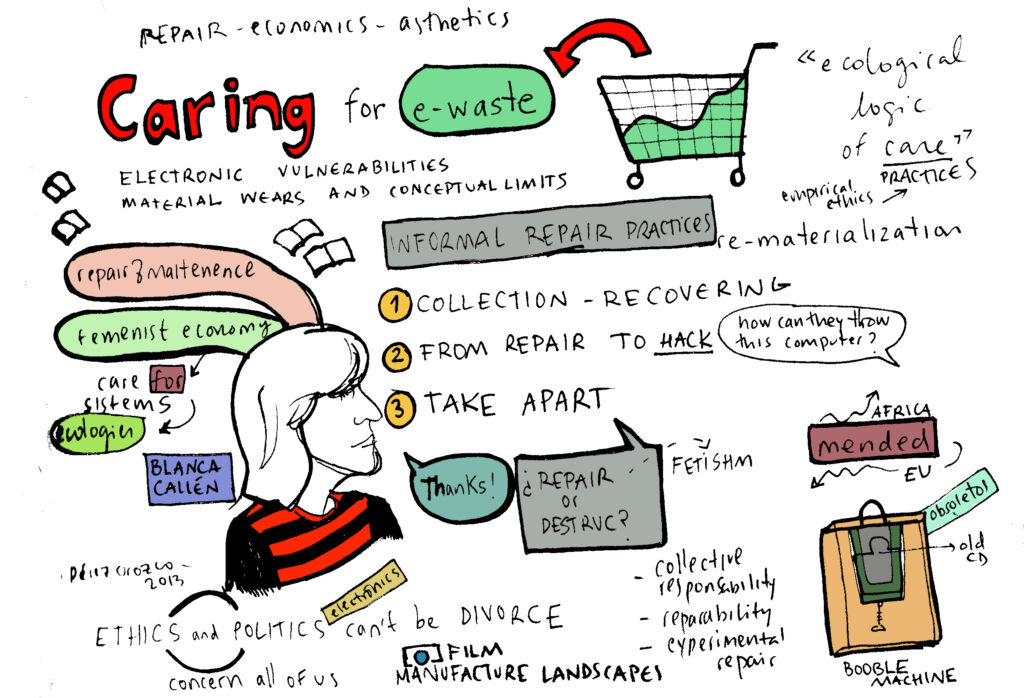 REPAIR - economics - asthetics
Caring for e-waste
"ecological
logic
of care"
PRACTICES
empirical
ethics
ELECTRONIC VULNERABILITIES
MATERIAL WEARS AND CONCEPTUAL LIMITS
INFORMAL REPAIR PRACTICES
re-materialization
repair & maltenence
femenist economy
care for
sistems
ecologies
BLANCA
CALLÉN
1 COLLECTION - RECOVERING
2 FROM REPAIR TO HACK
how can they throw
this computer?
3 TAKE APART
Thanks!
¿REPAIR
or
DESTRUC?
FETISHM
AFRICA
mended
EU
obsoletos
old
CD
BOOBLE
MACHINE
- collective
responsability
- reparability
- experimental
repair
2013
electronics
ETHICS and POLITICS can't be DIVORCE
concern all of us
FILM
MANUFACTURE LANDSCAPES